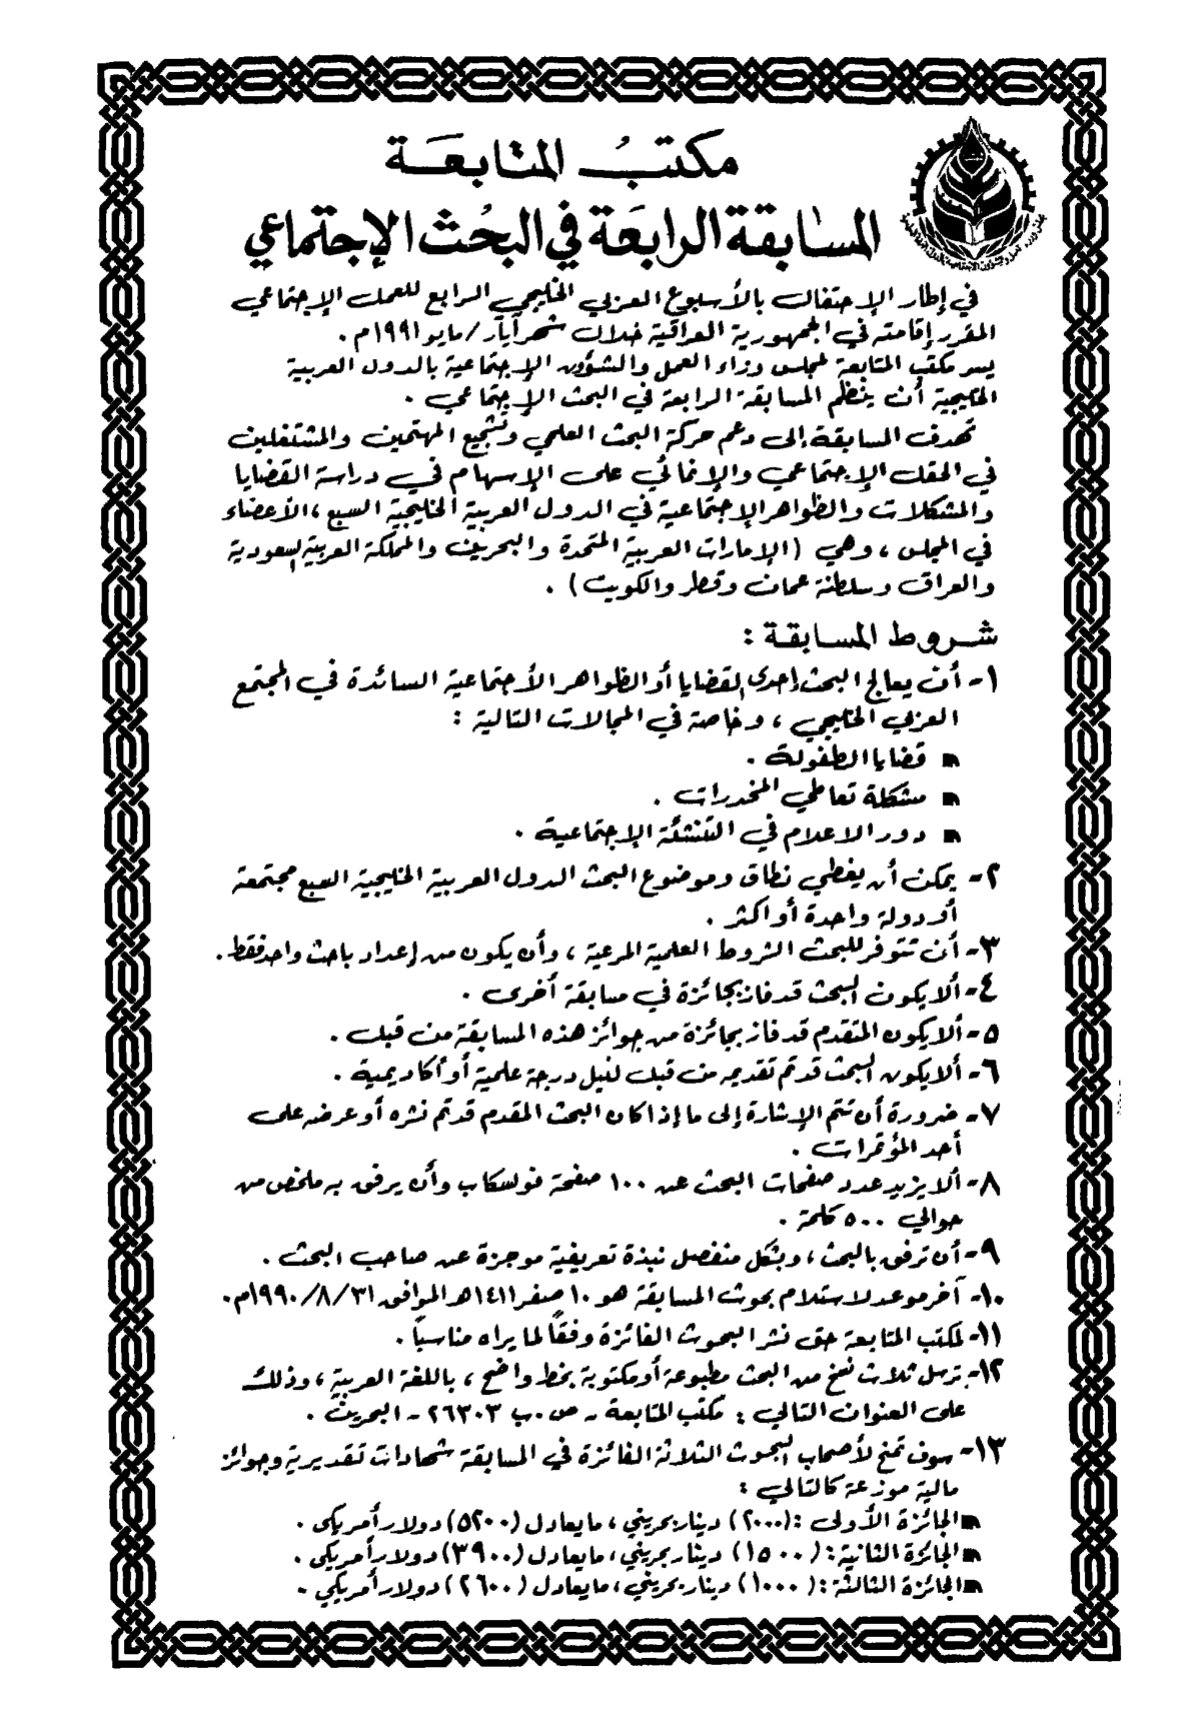 مكتب المتابعة
المسابقة الرابعة في البحث الإجتماعي
في إطار الإحتفال بالأسبوع العربي الخليجي الرابع للعمل الإجتماعي
المقرر إقامته في الجمهورية العراقية خلال شهر آيار/مايو ١٩٩١م.
يسر مكتب المتابعة لمجلس وزراء العمل والشؤون الإجتماعية بالدول العربية
الخليجية أن ينظم المسابقة الرابعة في البحث الإجتماعي.
تهدف المسابقة إلى دعم حركة البحث العلمي وتشجيع المهتمين والمشتغلين
في الحقل الإجتماعي والإنمائي على الإسهام في دراسة القضايا
والمشكلات والظواهر الإجتماعية في الدول العربية الخليجية السبع، الأعضاء
في المجلس، وهي (الإمارات العربية المتحدة والبحرين والمملكة العربية السعودية
والعراق وسلطنة عمان وقطر والكويت).
شروط المسابقة:
١- أن يعالج البحث إحدى القضايا أو الظواهر الأجتماعية السائدة في المجتمع
العربي الخليجي، وخاصة في المجالات التالية:
قضايا الطفولة.
مشكلة تعاطي المخدرات.
دور الاعلام في التنشئة الإجتماعية.
٢- يمكن أن يغطي نطاق وموضوع البحث الدول العربية الخليجية السبع مجتمعة
أو دولة واحدة أو اكثر.
٣- أن تتوفر للبحث الشروط العلمية المرعية، وأن يكون من إعداد باحث واحد فقط.
٤- ألا يكون البحث قد فاز بجائزة في مسابقة أخرى.
٥- ألا يكون المتقدم قد فاز بجائزة من جوائز هذه المسابقة من قبل.
٦- ألا يكون البحث قد تم تقديمه من قبل لنيل درجة علمية أو أكاديمية.
٧- ضرورة أن تتم الإشارة إلى ما إذا كان البحث المقدم قد تم نشره أو عرضه على
أحد المؤتمرات.
٨- ألا يزيد عدد صفحات البحث عن ١٠٠ صفحة فولسكاب وأن يرفق به ملخص من
حوالي ٥٠٠ كلمة.
٩- أن ترفق بالبحث، وبشكل منفصل نبذة تعريفية موجزة عن صاحب البحث.
١٠- آخر موعد لاستلام بحوث المسابقة هو ١٠ صفر ١٤١١هـ الموافق ١٩٩٠/٨/٣١م.
١١- لمكتب المتابعة حق نشر البحوث الفائزة وفقاً لما يراه مناسباً.
١٢- ترسل ثلاث نسخ من البحث مطبوعة أو مكتوبة بخط واضح، باللغة العربية، وذلك
على العنوان التالي: مكتب المتابعة - ص.ب ٢٦٣٠٣ - البحرين.
١٣- سوف تمنح لأصحاب البحوث الثلاثة الفائزة في المسابقة شهادات تقديرية وجوائز
مالية موزعة كالتالي:
الجائزة الأولى: (٢٠٠٠) دينار بحريني، مايعادل (٥٢٠٠) دولار أمريكي.
الجائزة الثانية: (١٥٠٠) دينار بحريني، مايعادل (٣٩٠٠) دولار أمريكي.
الجائزة الثالثة: (١٠٠٠) دينار بحريني، مايعادل (٢٦٠٠) دولار أمريكي.